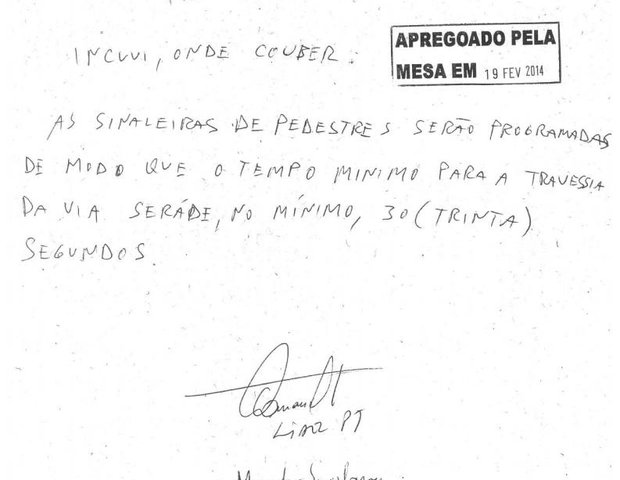 INCLUI, ONDE COUBER:
APREGOADO PELA
MESA EM 19 FEV 2014
AS SINALEIRAS DE PEDESTRES SERÃO PROGRAMADAS
DE MODO QUE O TEMPO MINIMO PARA A TRAVESSIA
DA VIA SERÁ DE, NO MÍNIMO, 30 (TRINTA)
SEGUNDOS.
PT